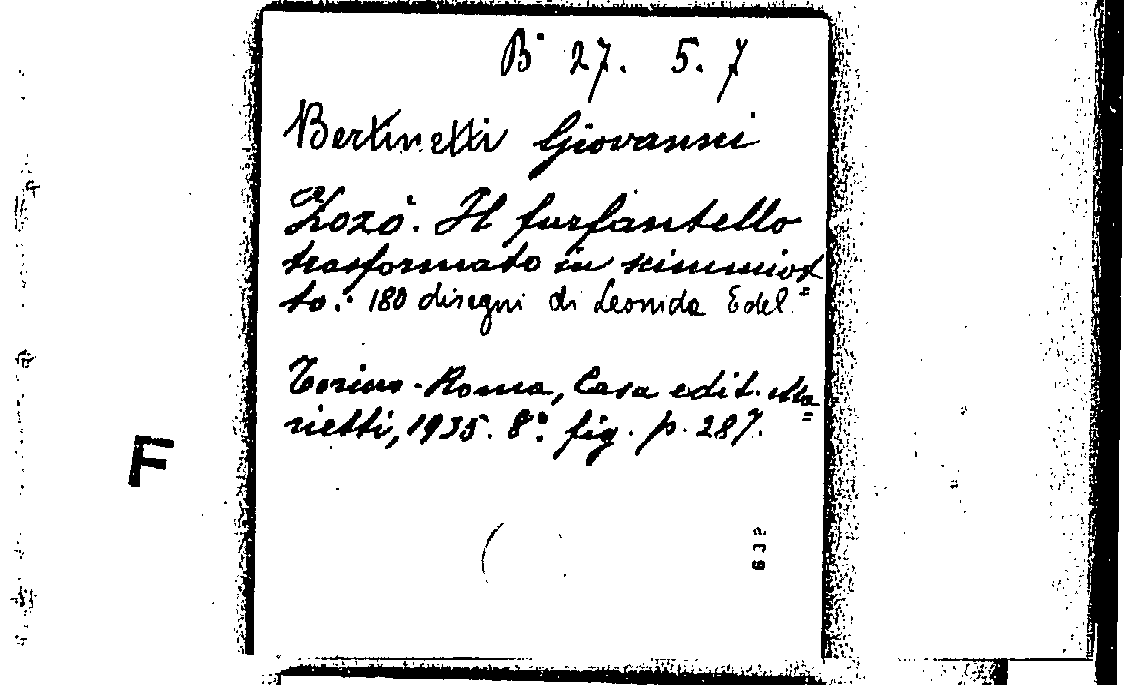 B° 27. 5. 7
Bertinetti Giovanni
Zozò. Il furfantello
trasformato in scimmiot
to: 180 disegni di Leonida Edel =
Torino-Roma, Casa edit. Ma
=
rietti, 1935. 8°. fig. p. 287.
F